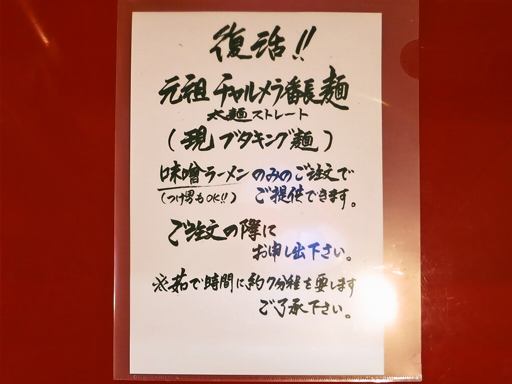 復活!!
元祖 チャルメラ番長麺
太麺ストレート
(現 ブタキング麺)
味噌ラーメンのみのご注文で
(つけ男もOK!!) ご提供できます。
ご注文の際に
お申し出下さい。
※茹で時間に約7分程を要します
ご了承下さい。